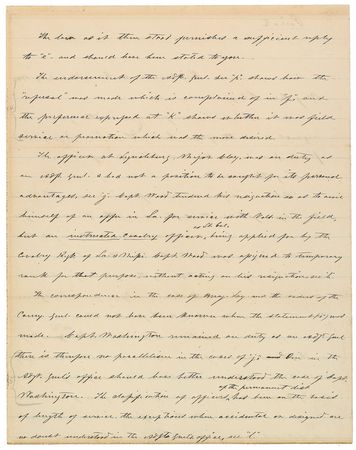 The law as it then stood furnished a sufficient reply
to "i" and should have been stated to you.
The endorsement of the Adjt. Genl. see "k" shows how the
"refusal" was made which is complained of in "j" and
the preference expressed at "k" shows whether it was field
service or promotion which was the more desired.
The officer at Lynchburg, Major Clay, was on duty as
an Adjt. Genl. & had not a position to be sought for its personal
advantages, see j. Capt. Wood tendered his resignation so as to avail
himself of an offer in La. for service with Vols in the field,
as Lt. Col.
but an instructed Cavalry officer, being applied for by the
Cavalry Regt. of La. & Miss. Capt. Wood was assigned to temporary
rank for that purpose, without acting on his resignation see L.
The correspondence in the case of and the orders of the
Genl. could not have been known when the statement was
made. Capt. Washington remained on duty as an Adjt. Genl
there is therefore no parallelism in the cases of "j" and in the
Adjt. Genl's office should have better understood the case of Capt.
of the permanent list
Washington. The classification of officers, has been on the basis
of length of service. The exceptions when accidental or designed are
no doubt understood in the Adjt. Genl's office, see "l"